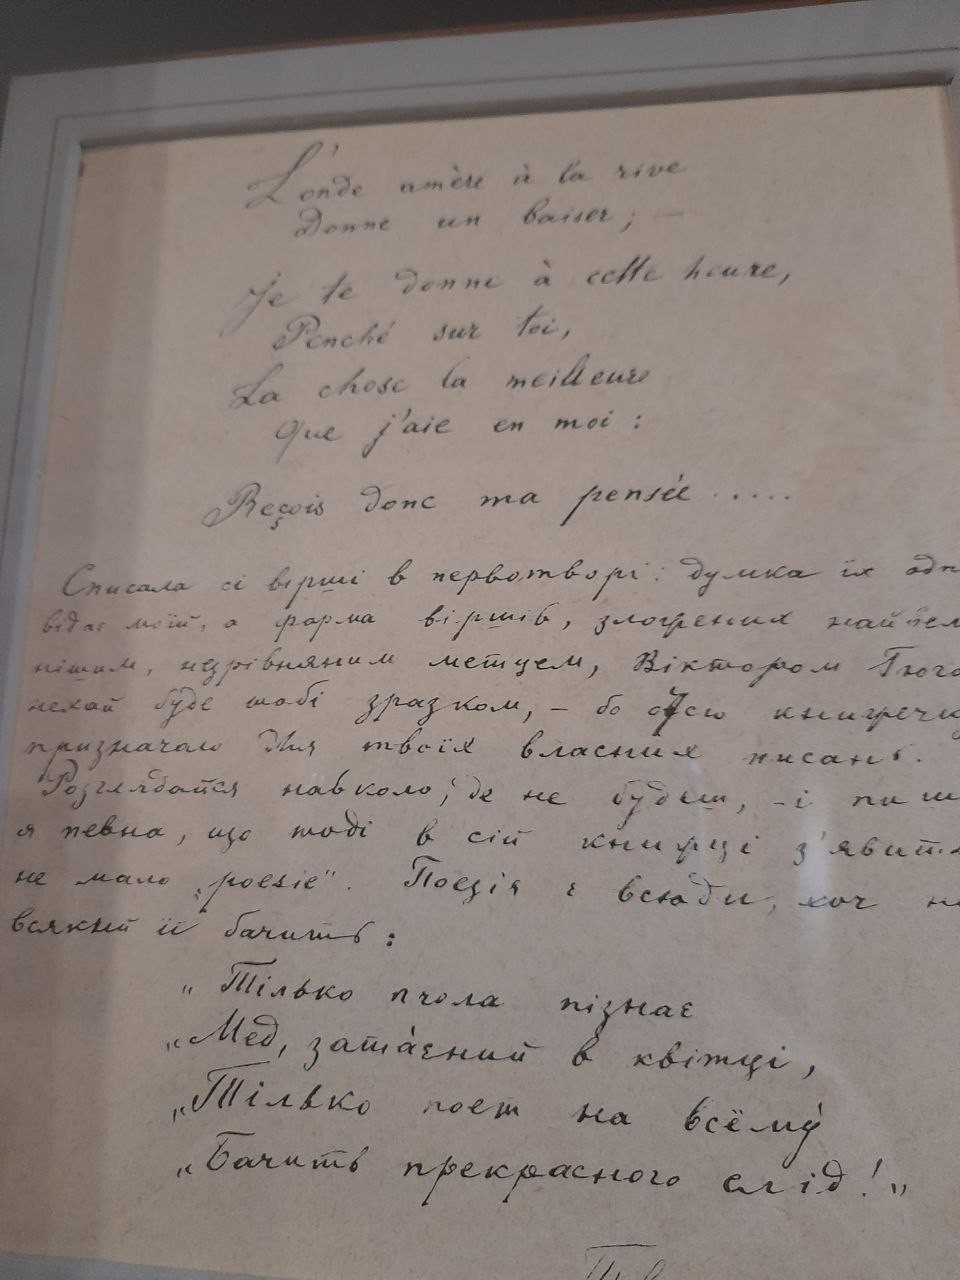 L'onde amère à la rive
Donne un baiser; —
Je te donne à cette heure,
Penché sur toi,
La chose la meilleure
Que j'aie en moi:
Reçois donc ma pensée.....
Списала сі вірші в первотворі: думка їх одпо
відає моїй, а форма віршів, зложених найвел
нішим, незрівняним метцем, Віктором Гюго
нехай буде тобі зразком, – бо отсю книжечку
призначаю для твоїх власних писань.
Розглядайся навколо, де не будеш, – і пиш
я певна, що тоді в сій книжці з'явить
не мало „poesie". Поезія є всюди, хоч не
всякий її бачить:
„Тілько пчола пізнає
„Мед, затаєний в квітці,
„Тілько поет на всёму
„Бачить прекрасного слід!„